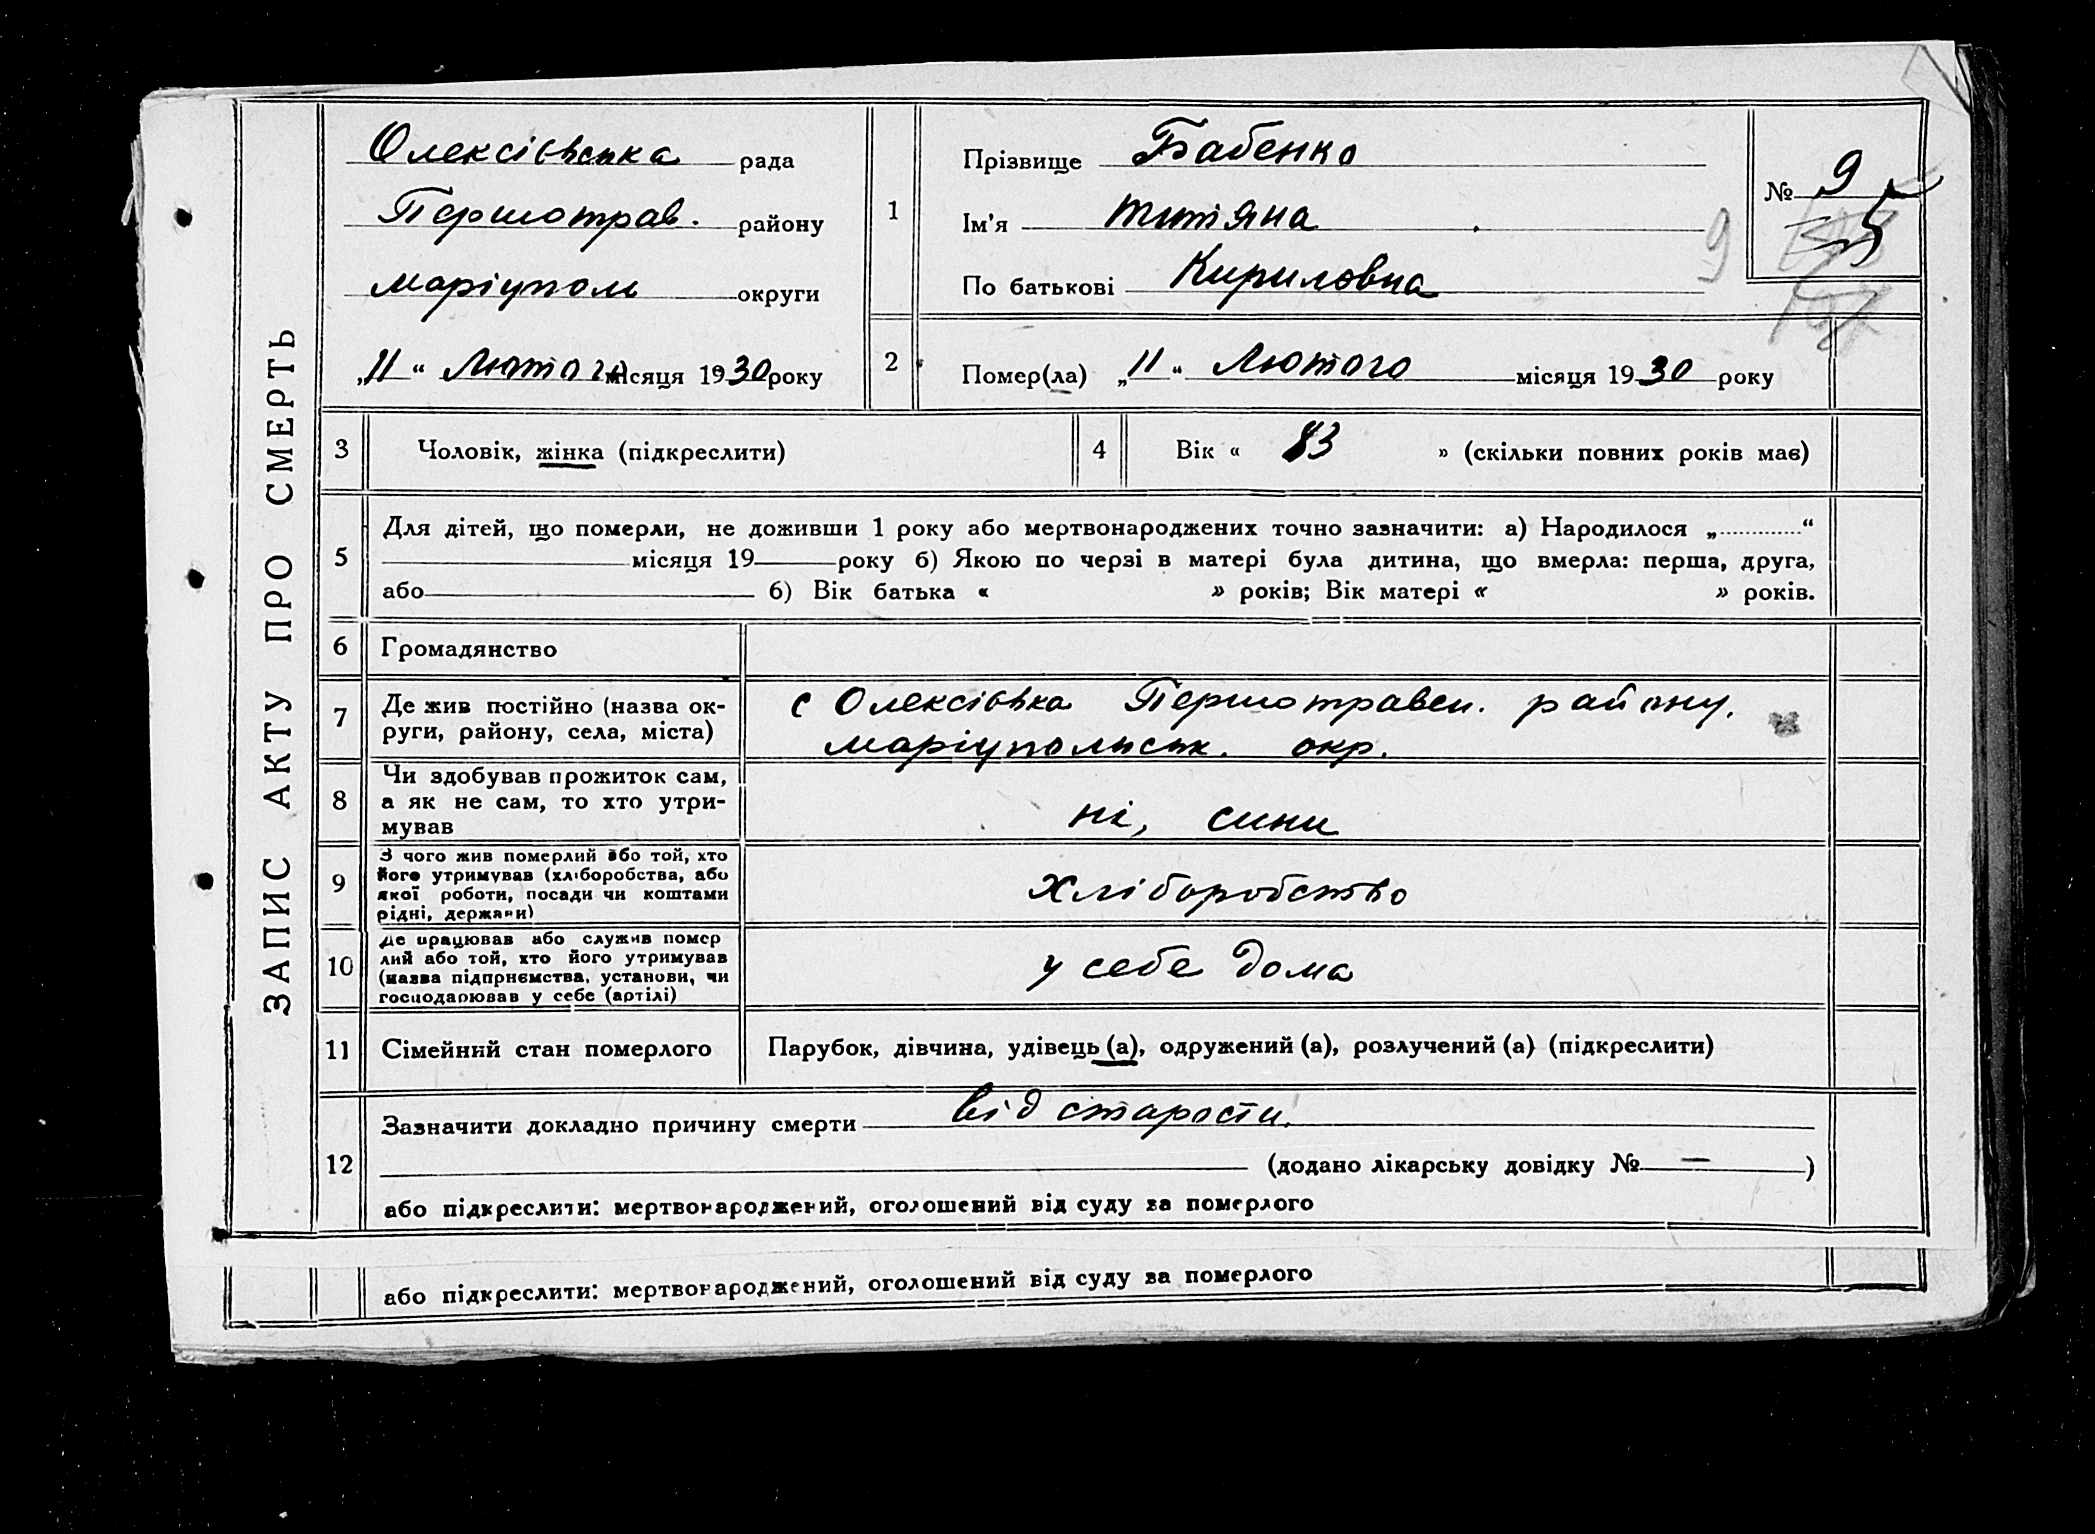 ЗАПИС АКТУ ПРО СМЕРТЬ
Олексіївська рада
Першотрав. району
Маріупол округи
„11“ Лютого місяця 1930 року
1
Прізвище Бабенко
Ім'я Титяна
По батькові Кириловна
№ 9
9
2
Помер(ла) „11“ Лютого місяця 1930 року
3 Чоловік, жінка (підкреслити)
4 Вік « 83 » (скільки повних років має)
5
Для дітей, що померли, не доживши 1 року або мертвонароджених точно зазначити: а) Народилося „ “
місяця 19 року б) Якою по черзі в матері була дитина, що вмерла: перша, друга,
або б) Вік батька « » років; Вік матері « » років.
6 Громадянство
7
Де жив постійно (назва ок-
руги, району, села, міста)
с Олексіївка Першотравен. району.
Маріупольськ. окр.
8
Чи здобував прожиток сам,
а як не сам, то хто утри-
мував
ні, сини
9
З чого жив померлий або той, хто
його утримував (хліборобства, або
якої роботи, посади чи коштами
рідні, держави)
Хліборобство
10
Де працював або служив помер
лий або той, хто його утримував
(назва підприємства, установи, чи
господарював у себе (артілі)
у себе дома
11 Сімейний стан померлого
Парубок, дівчина, удівець (а), одружений (а), розлучений (а) (підкреслити)
12
Зазначити докладно причину смерти від старости.
(додано лікарську довідку № — )
або підкреслити: мертвонароджений, оголошений від суду за померлого
або підкреслити: мертвонароджений, оголошений від суду за померлого